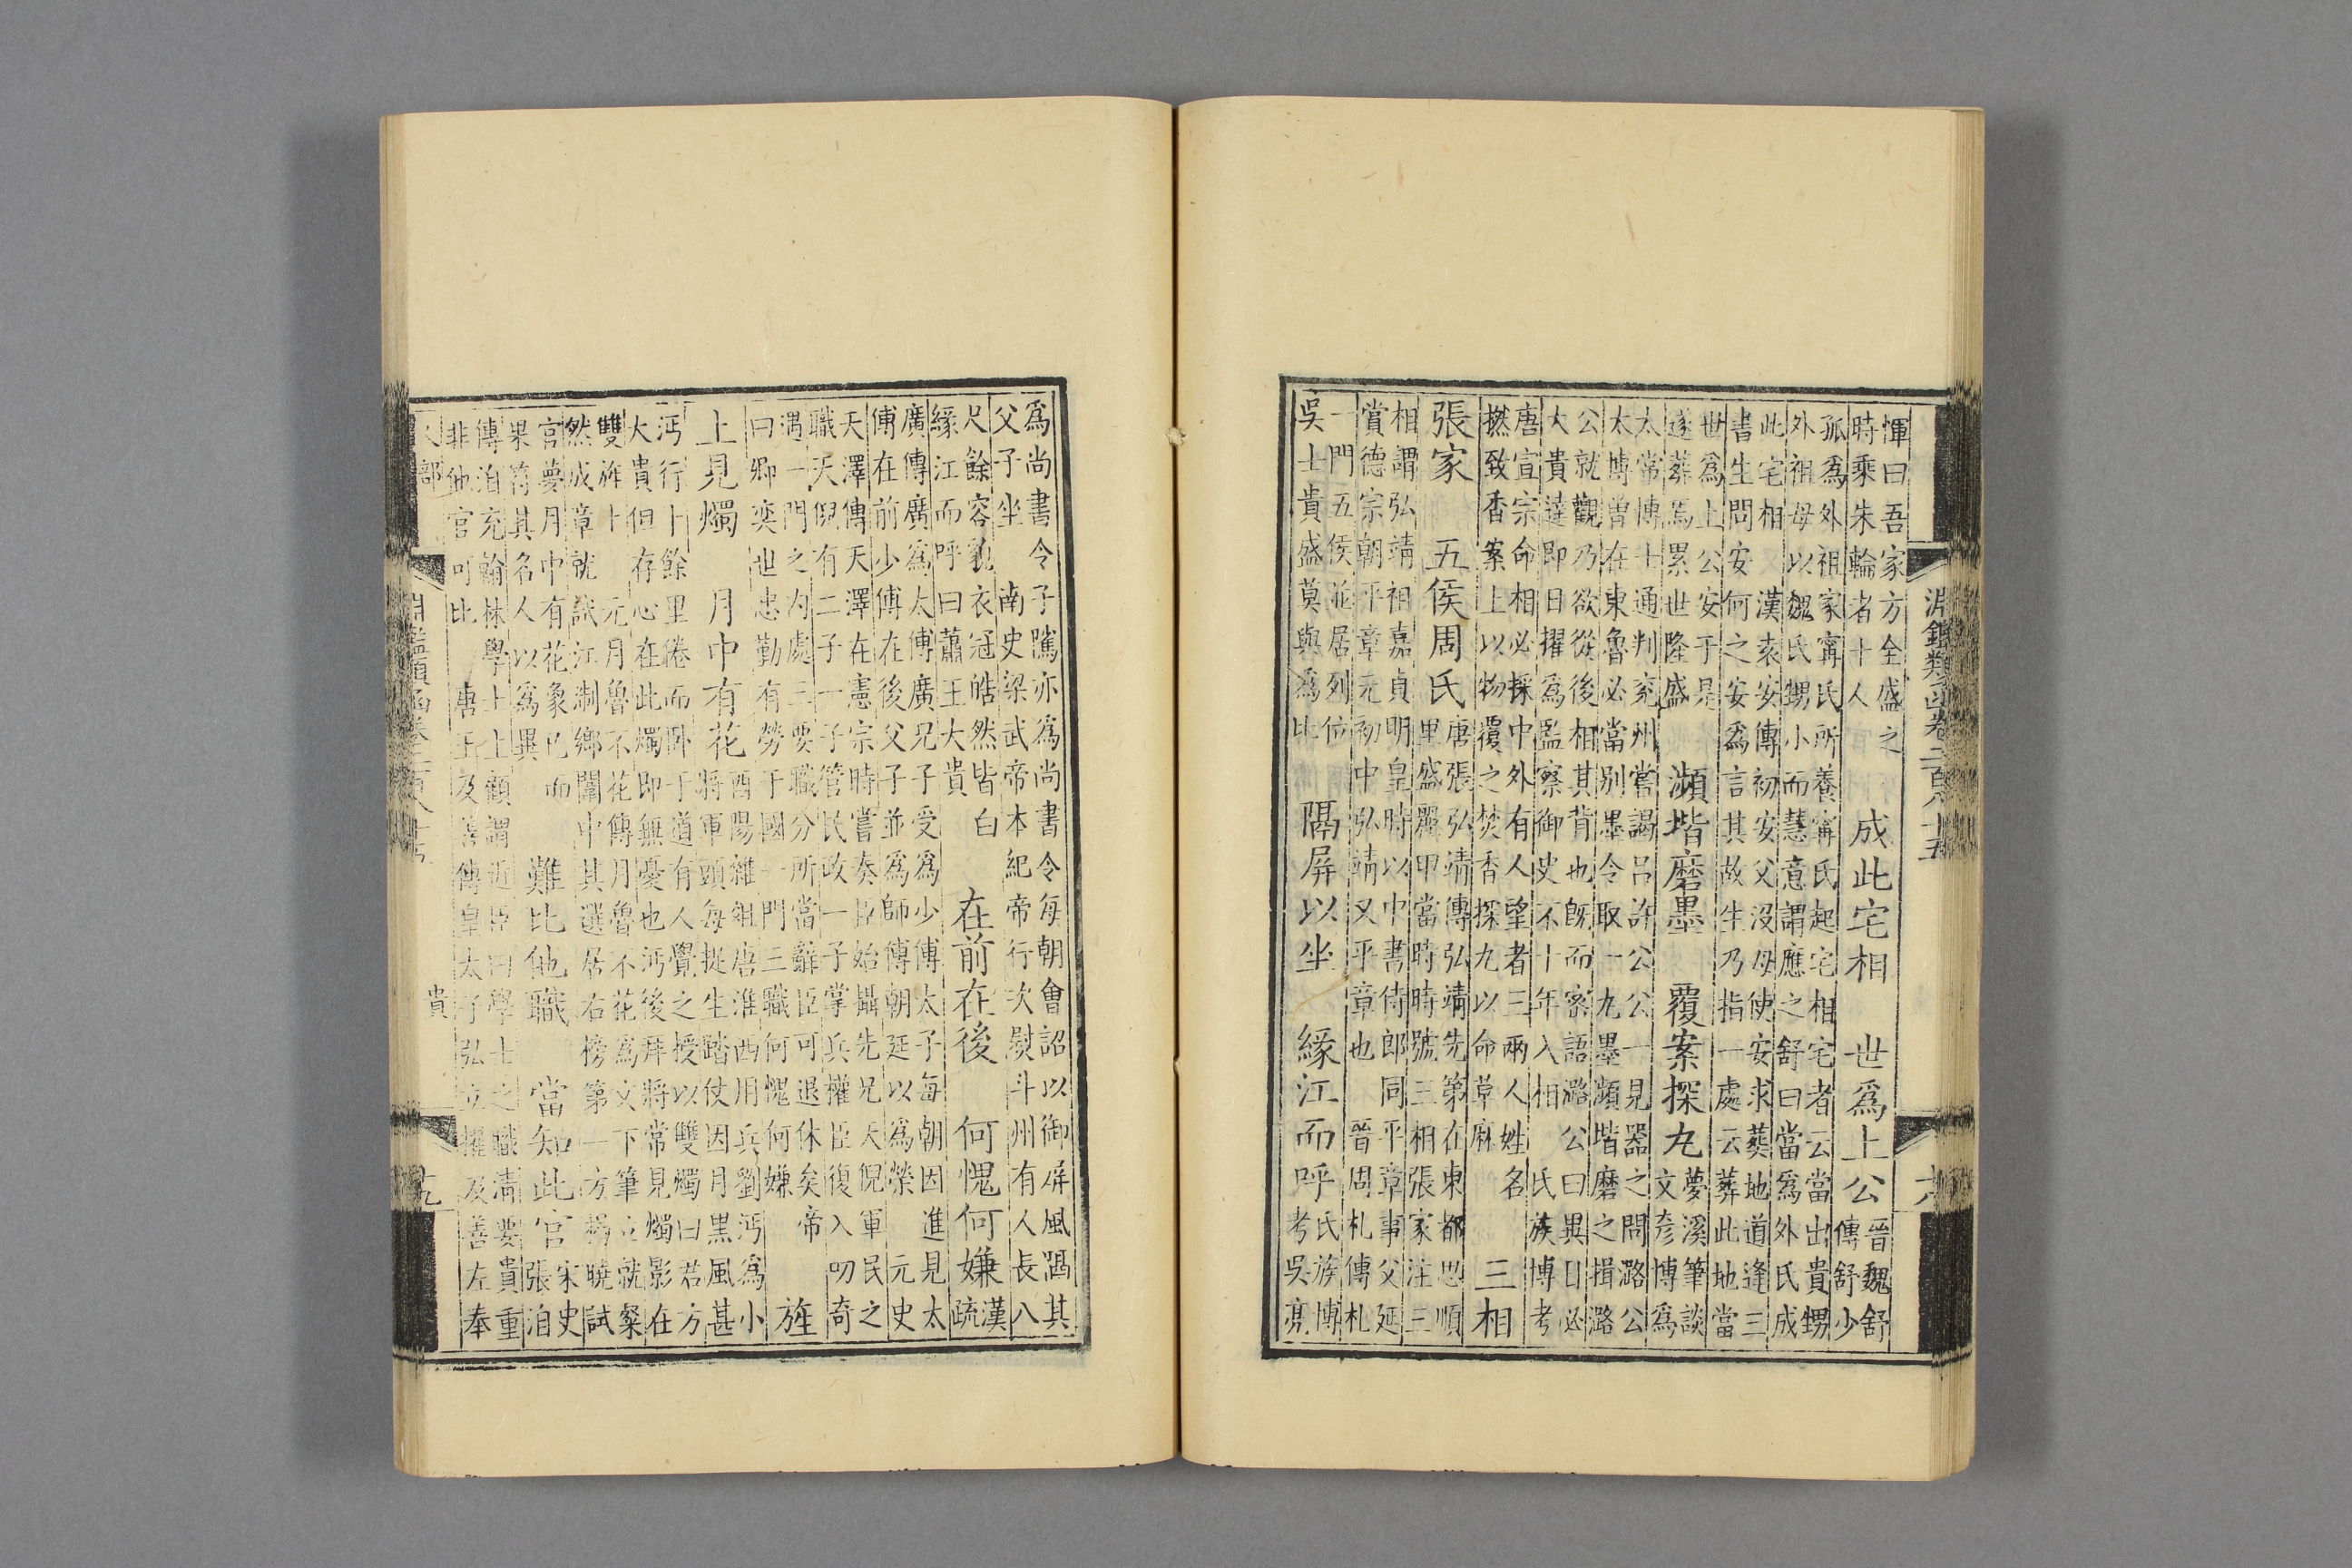 淵鑑類函卷二百八十五
惲曰吾家方全盛之
時乘朱輪者十人
成此宅相
世爲上公
晉魏舒
傳舒少
孤爲外祖家甯氏所養甯氏起宅相宅者云當出貴甥
外祖母以魏氏甥小而慧意謂應之舒曰當爲外氏成
此宅相
漢袁安傳初安父沒母使安求葬地道逢三
書生問安何之安爲言其故生乃指一處云葬此地當
世爲上公安于是
遂葬焉累世隆盛
瀕堦磨墨
覆案探丸
夢溪筆談
文彥博爲
太常博士通判兗州嘗謁呂許公公一見器之問潞公
太博曾在東魯必當別墨令取一丸墨瀕堦磨之揖潞
公就觀乃欲從後相其背也旣而密語潞公曰異日必
大貴達即日擢爲監察御史不十年入相
氏族博考
唐宣宗命相必採中外有人望者三兩人姓名
撚致香案上以物覆之焚香探丸以命草麻
三相
張家
五侯周氏
唐張弘靖傳弘靖先第在東都思順
里盛麗甲當時時號三相張家注三
相謂弘靖祖嘉貞明皇時以中書侍郎同平章事父延
賞德宗朝平章元初中弘靖又平章也
晉周札傳札
一門五侯並居列位
吳士貴盛莫與爲比
隔屏以坐
緣江而呼
氏族博
考吳亮
爲尚書令子騭亦爲尚書令每朝會詔以御屏風隔其
父子坐
南史梁武帝本紀帝行次慰斗州有人長八
尺餘容貌衣冠皓然皆白
緣江而呼曰蕭王大貴
在前在後
何愧何嫌
漢疏
廣傳廣爲太傅廣兄子受爲少傅太子每朝因進見太
傅在前少傅在後父子並爲師傅朝廷以爲榮
元史
天澤傳天澤在憲宗時嘗奏臣始攝先兄天倪軍民之
職天倪有二子一子管民政一子掌兵權臣復入叨奇
遇一門之內處三要職分所當辭臣可退休矣帝
曰卿奕世忠勤有勞于國一門三職何愧何嫌
旌
上見燭
月中有花
酉陽雜俎唐淮西用兵劉沔爲小
將軍頭每捉生踏伏因月黑風甚
沔行十餘里倦而卧于道有人覺之授以雙燭曰君方
大貴但存心在此燭即無憂也沔後拜將常見燭影在
雙旌上
元月魯不花傳月魯不花爲文下筆立就粲
然成章就試江制鄉闈中其選居右榜第一方揭曉試
官夢月中有花象已而
果符其名人以爲異
難比他職
當知此官
宋史
張洎
傳洎充翰林學士上顧謂近臣曰學士之職淸要貴重
非他官可比
唐王及善傳皇太子弘立擢及善左奉
人部
貴